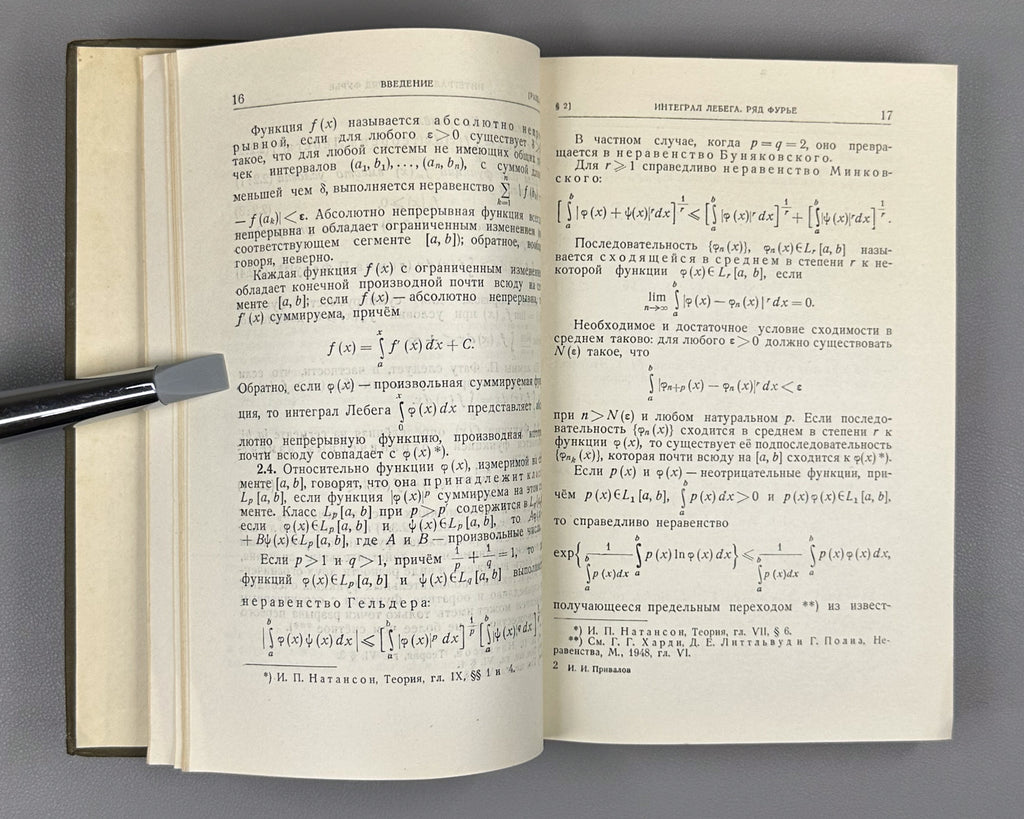 16 ВВЕДЕНИЕ
Функция f(x) называется абсолютно
рывной, если для любого ε>0 существует
такое, что для любой системы не имеющих общих
чек интервалов (a₁, b₁),..., (aₙ, bₙ), с суммой
меньшей чем δ, выполняется неравенство ∑ₖ₌₁ⁿ |f(bₖ)
— f(aₖ)|<ε. Абсолютно непрерывная функция
непрерывна и обладает ограниченным изменением
соответствующем сегменте [a, b]); обратное,
говоря, неверно.
Каждая функция f(x) с ограниченным
обладает конечной производной почти всюду на
менте [a, b]; если f(x) — абсолютно непрерывна,
f′(x) суммируема, причём
f(x) = ∫ₐˣ f′(x) dx + C.
Обратно, если φ(x) — произвольная суммируемая
ция, то интеграл Лебега ∫₀ˣ φ(x) dx представляет
лютно непрерывную функцию, производная
почти всюду совпадает с φ(x)*).
2.4. Относительно функции φ(x), измеримой на
менте [a, b], говорят, что она принадлежит
Lₚ[a, b], если функция |φ(x)|ᵖ суммируема на этом
менте. Класс Lₚ[a, b] при p>p′ содержится в
если φ(x)∈Lₚ[a, b] и ψ(x)∈Lₚ[a, b], то
+ Bψ(x)∈Lₚ[a, b], где A и B — произвольные
Если p>1 и q>1, причём 1/p + 1/q = 1, то
функций φ(x)∈Lₚ[a, b] и ψ(x)∈L_q[a, b]
неравенство Гельдера:
|∫ₐᵇ φ(x) ψ(x) dx| ⩽ [∫ₐᵇ |φ(x)|ᵖ dx]^{1/p} [∫ₐᵇ |ψ(x)|^q dx]
*) И. П. Натансон, Теория, гл. IX, §§ 1 и 4.
§ 2] ИНТЕГРАЛ ЛЕБЕГА. РЯД ФУРЬЕ 17
В частном случае, когда p = q = 2, оно превра-
щается в неравенство Буняковского.
Для r ⩾ 1 справедливо неравенство Минков-
ского:
[∫ₐᵇ |φ(x) + ψ(x)|ʳ dx]^{1/r} ⩽ [∫ₐᵇ |φ(x)|ʳ dx]^{1/r} + [∫ₐᵇ |ψ(x)|ʳ dx]^{1/r}.
Последовательность {φₙ(x)}, φₙ(x)∈Lᵣ[a, b] назы-
вается сходящейся в среднем в степени r к не-
которой функции φ(x)∈Lᵣ[a, b], если
lim_{n→∞} ∫ₐᵇ |φ(x) — φₙ(x)|ʳ dx = 0.
Необходимое и достаточное условие сходимости в
среднем таково: для любого ε>0 должно существовать
N(ε) такое, что
∫ₐᵇ |φₙ₊ₚ(x) — φₙ(x)|ʳ dx < ε
при n>N(ε) и любом натуральном p. Если последо-
вательность {φₙ(x)} сходится в среднем в степени r к
функции φ(x), то существует её подпоследовательность
{φ_{nₖ}(x)}, которая почти всюду на [a, b] сходится к φ(x)*).
Если p(x) и φ(x) — неотрицательные функции, при-
чём p(x)∈L₁[a, b], ∫ₐᵇ p(x) dx>0 и p(x)φ(x)∈L₁[a, b],
то справедливо неравенство
exp{1/(∫ₐᵇ p(x)dx) ∫ₐᵇ p(x) ln φ(x) dx} ⩽ 1/(∫ₐᵇ p(x)dx) ∫ₐᵇ p(x)φ(x) dx,
получающееся предельным переходом **) из извест-
*) И. П. Натансон, Теория, гл. VII, § 6.
**) См. Г. Г. Харди, Д. Е. Литтльвуд и Г. Полиа, Не-
равенства, М., 1948, гл. VI.
2 И. И. Привалов